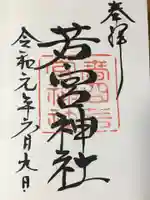 奉拝
若宮神社
令和元年六月九日